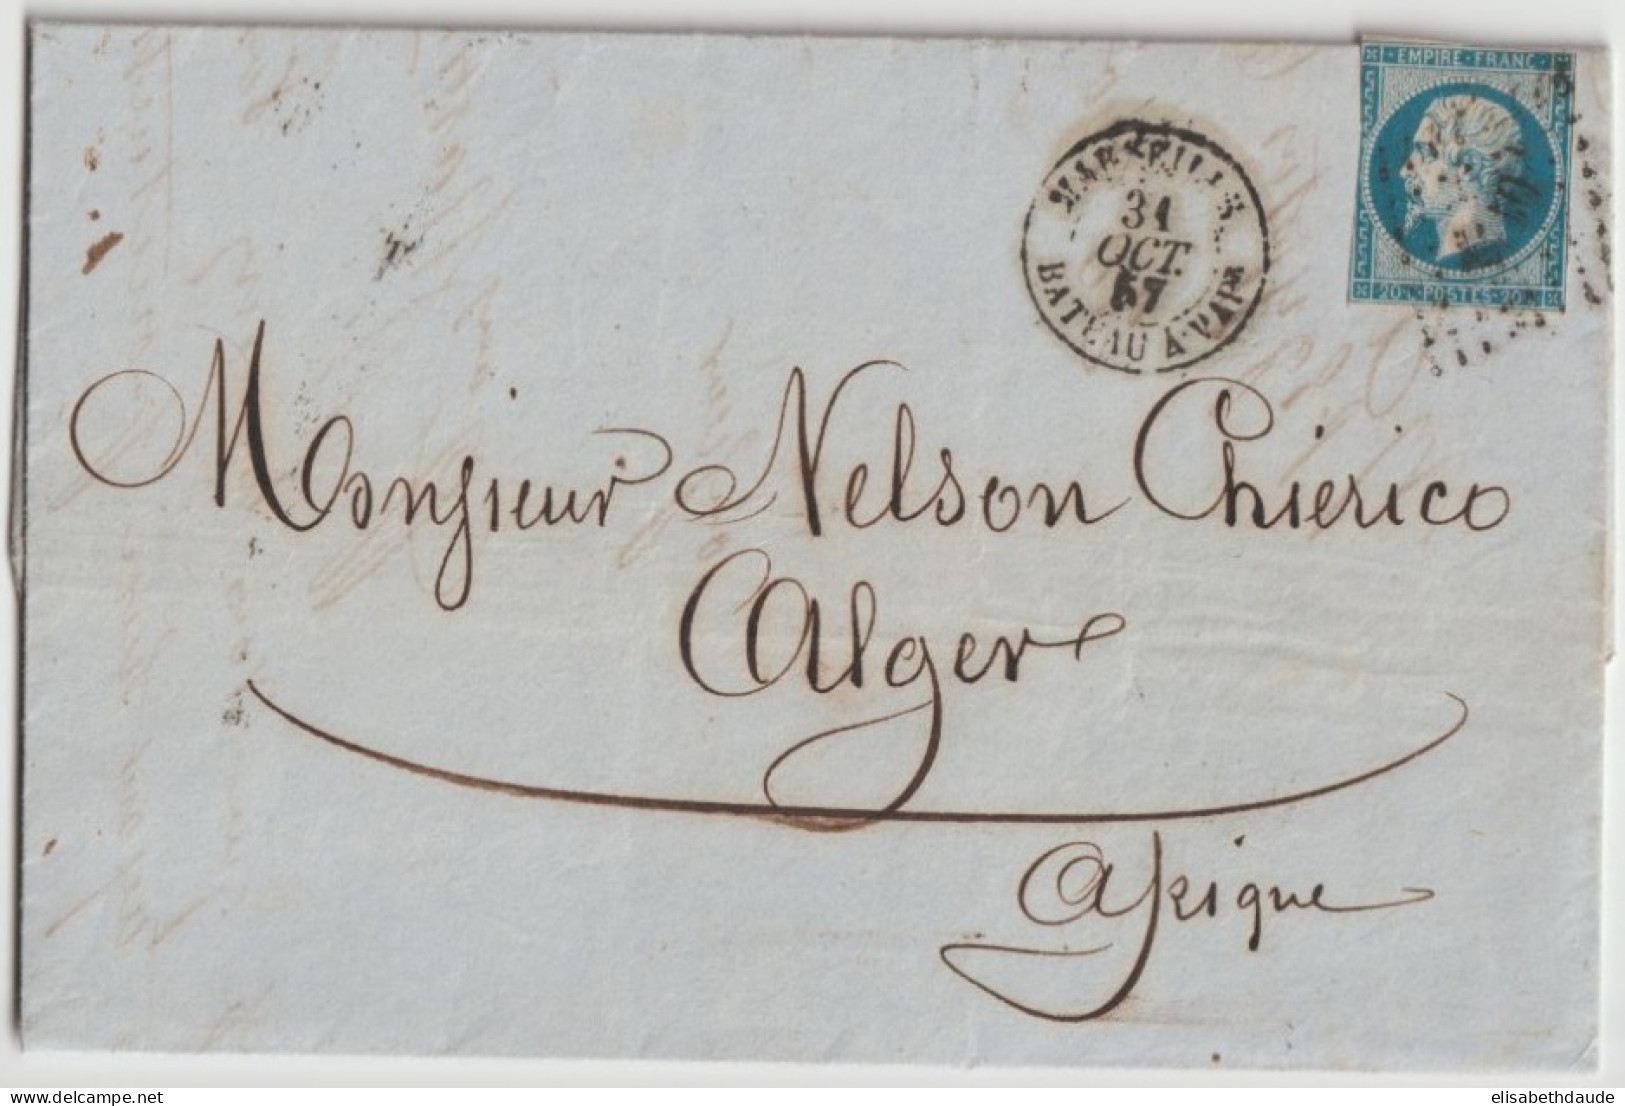 EMPIRE · FRANC ·
20 · C · POSTES · 20 · C
MARSEILLE
31
OCT.
57
BATEAU A VAPR
Monsieur Nelson Chierico
Alger
Afrique
delcampe.net
elisabethdaude